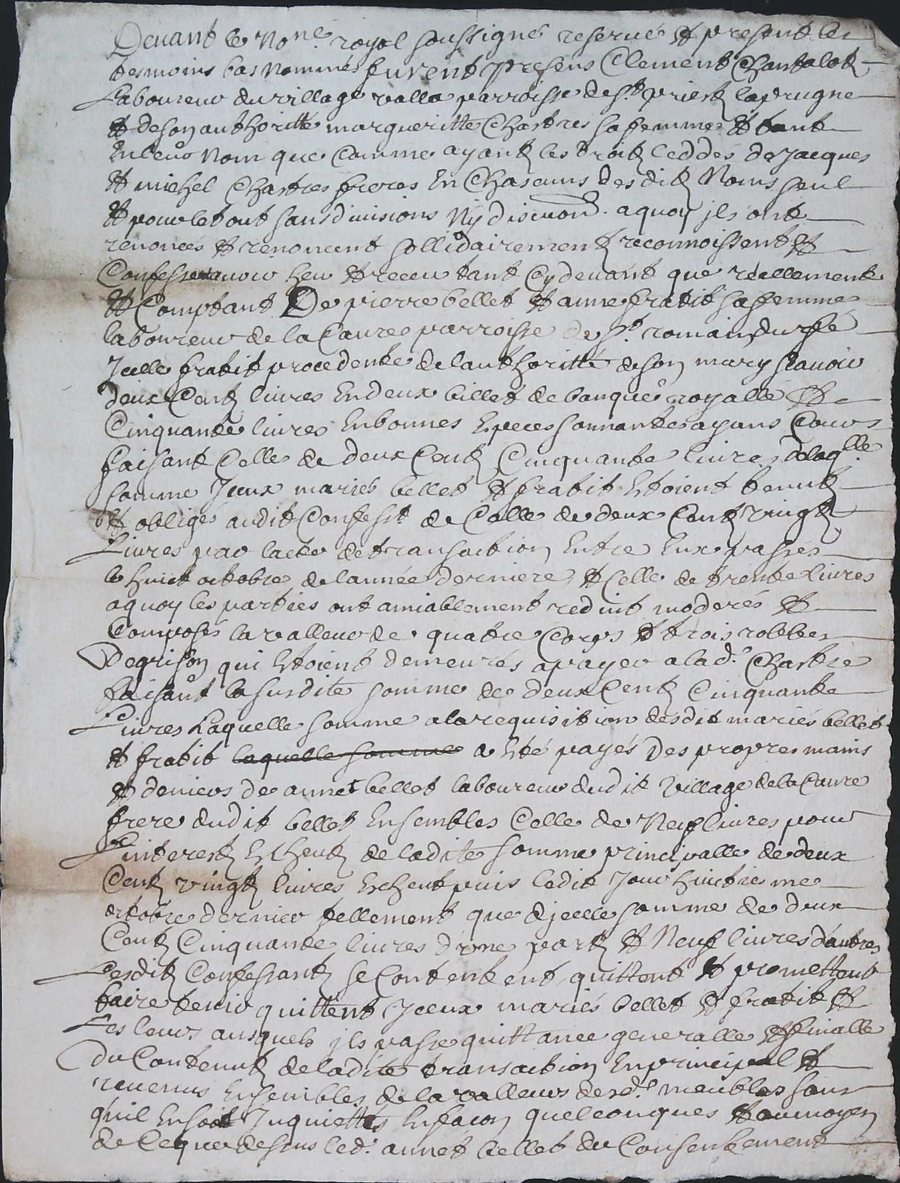 Devant le No.re royal soussigné reservé et presents les
tesmoins bas nommés furent presens Clement Chantelot
Laboureur du village valla parroisse de St. priest laprugne
et de son authoritté margueritte Chastres sa femme et tant
En leur Nom que Comme ayant les droitz Ceddés de Jacques
et michel Chastres freres En Chascuns desditz Noms seul
et pour le tout sans divisions Ny discution. a quoy ils ont
renoncés et renoncent sollidairement reconnoissent et
Confessent avoir heu et receu tant Cy devant que reellement
et Comptant De pierre bellet et anne fratit sa femme
laboureur de la Caure parroisse de St. romain durfé
Icelle fratit procedente de lauthoritté de son mary scavoir
deux Centz livres En deux billet de banque royalle et
Cinquante livres En bonnes Especes sonnantes ayans Cours
faisant Celle de deux Centz Cinquante livres de laq.lle
somme Iceux mariés bellet et fratit Estoient tenutz
et obligés audit Confess.t de Celle de deux Centz vingtz
Livres par lacte de transaction Entre Eux passés
le huict octobre de lannée derniere, et Celle de trente Livres
a quoy les parties ont amiablement reduit moderés et
Composés la valleur de quatre Corps et trois robbes
De grison qui Estoient demeurés a payer a lad. Chastre
faisant la susdite somme de deux Centz Cinquante
Livres Laquelle somme a la requisition desdit mariés bellet
et fratit laquelle somme a Eté payés Des propres mains
et deniers de annet bellet laboureur dudit village de la Caure
frere dudit bellet Ensembles Celle de Neuf livres pour
Linterestz Escheutz de ladite somme principalle de deux
Centz vingtz livres Escheut puis ledit Jour huictiesme
octobre dernier tellement que dicelle somme de deux
Centz Cinquante livres dune partz et Neuf livres dautres
Lesditz Confessantz se Contentent quittent et promettent
faire tenir quittent Iceux mariés bellet et fratit et
Les leurs ausquels ils passe quittance generalle et finalle
Du Contenutz de ladite transaction En principal et
revenus Ensembles de la valleur desd. meubles sans
quil En soit Inquiettés En facon quelconques et au moyen
de Ce que dessus led. annet bellet du Consentement